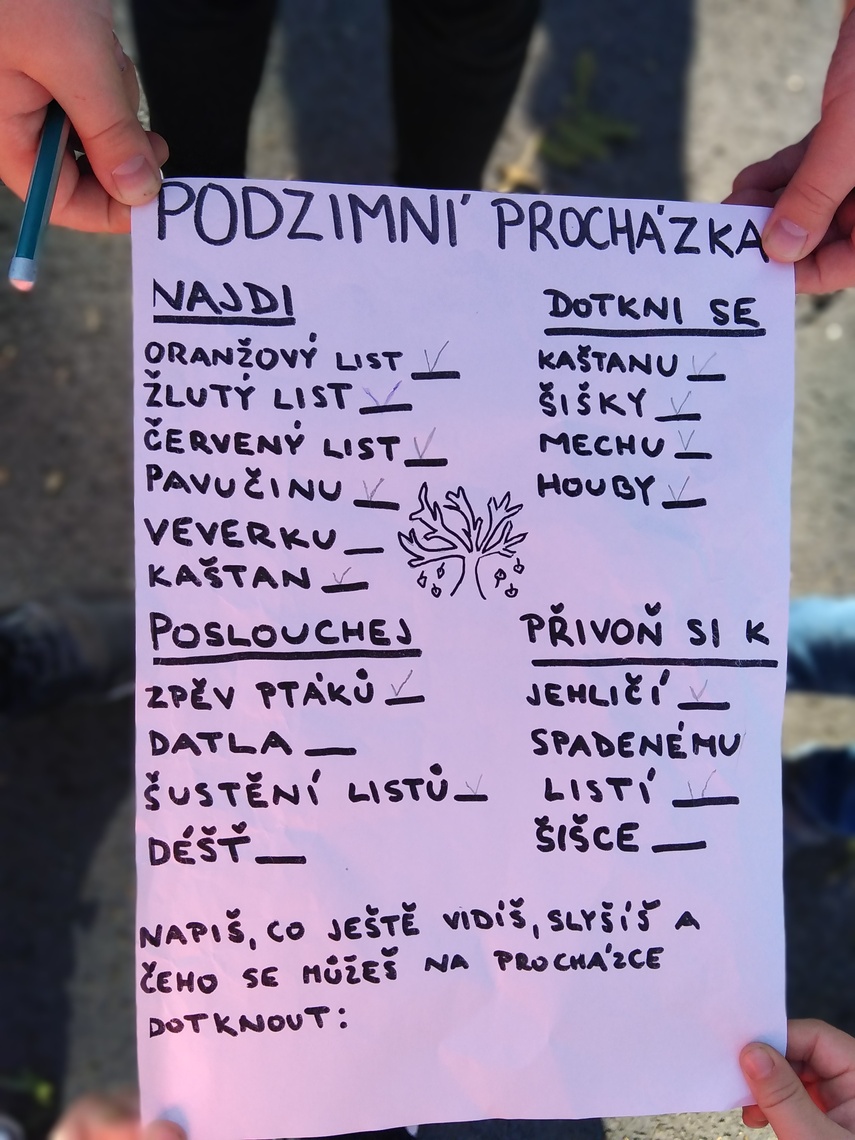 PODZIMNÍ PROCHÁZKA
NAJDI
ORANŽOVÝ LIST
ŽLUTÝ LIST
ČERVENÝ LIST
PAVUČINU
VEVERKU
KAŠTAN
DOTKNI SE
KAŠTANU
ŠIŠKY
MECHU
HOUBY
POSLOUCHEJ
ZPĚV PTÁKŮ
DATLA
ŠUSTĚNÍ LISTŮ
DÉŠŤ
PŘIVOŇ SI K
JEHLIČÍ
SPADENÉMU
LISTÍ
ŠIŠCE
NAPIŠ, CO JEŠTĚ VIDÍŠ, SLYŠÍŠ A
ČEHO SE MŮŽEŠ NA PROCHÁZCE
DOTKNOUT: